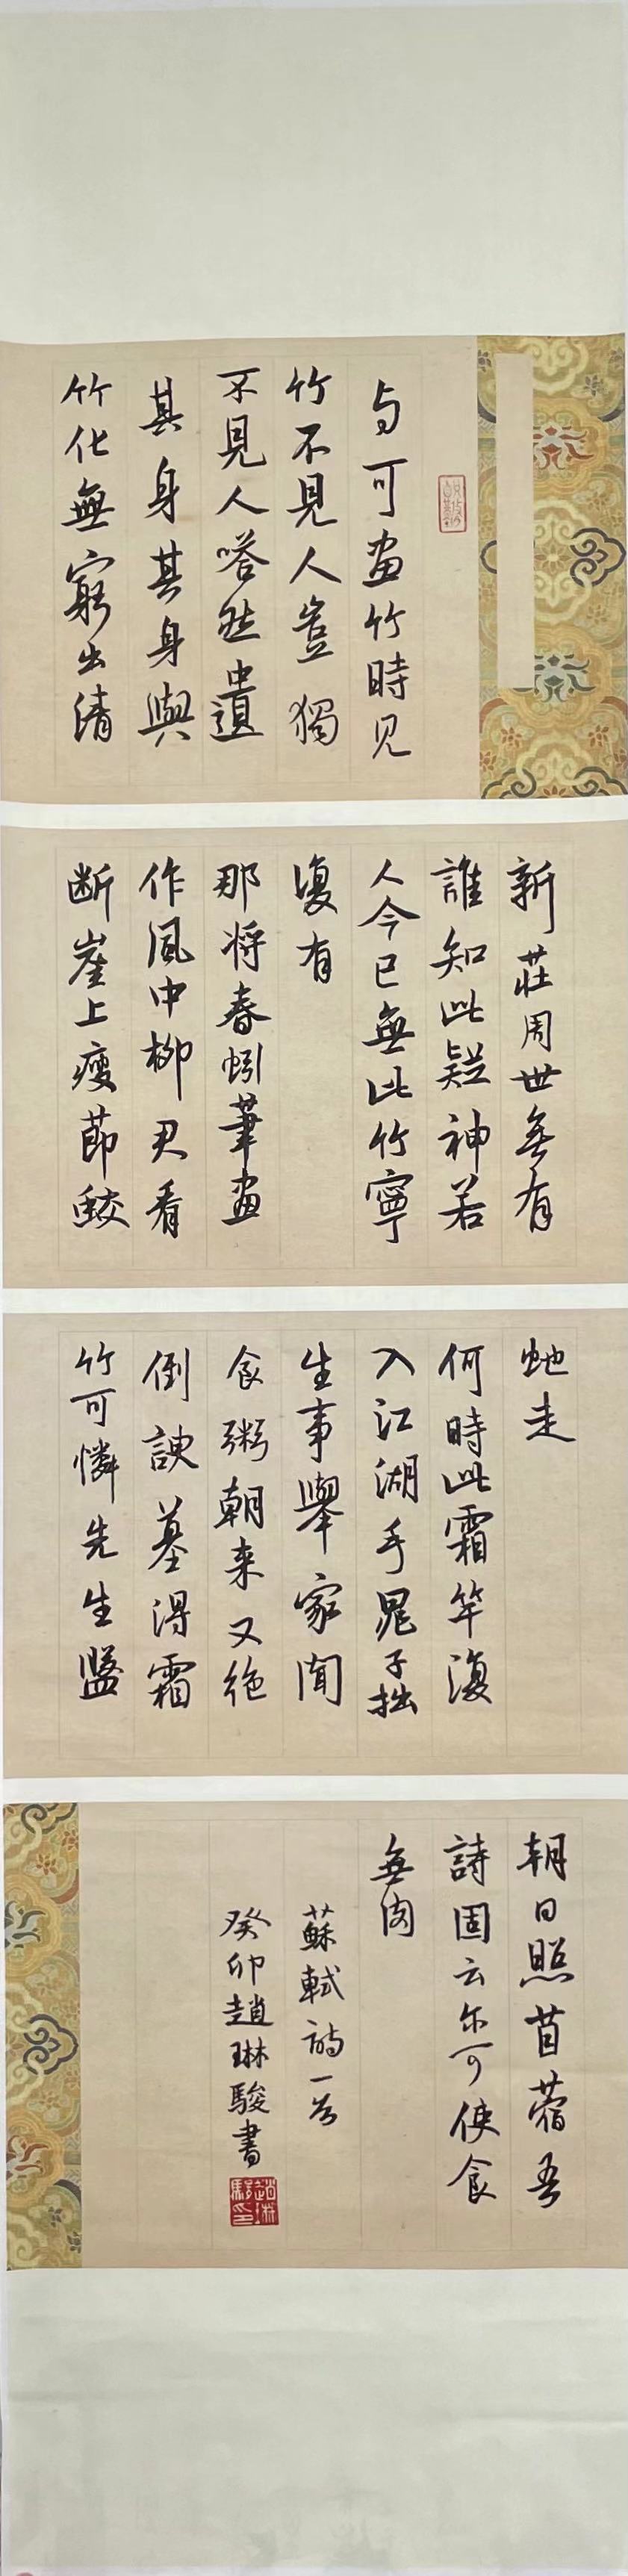 与可画竹時見
竹不見人豈獨
不見人嗒然遺
其身其身與
竹化無窮出清
新莊周世無有
誰知此疑神若
人今已無此竹寧
復有
那将春蚓筆畫
作風中柳君看
断崖上瘦節蛟
虵走
何時此霜竿復
入江湖手晁子拙
生事舉家聞
食粥朝来又绝
倒諛墓得霜
竹可憐先生盤
朝日照苜蓿吾
詩固云尔可使食
無肉
蘇軾詩一首
癸卯趙琳駿書
趙琳駿印